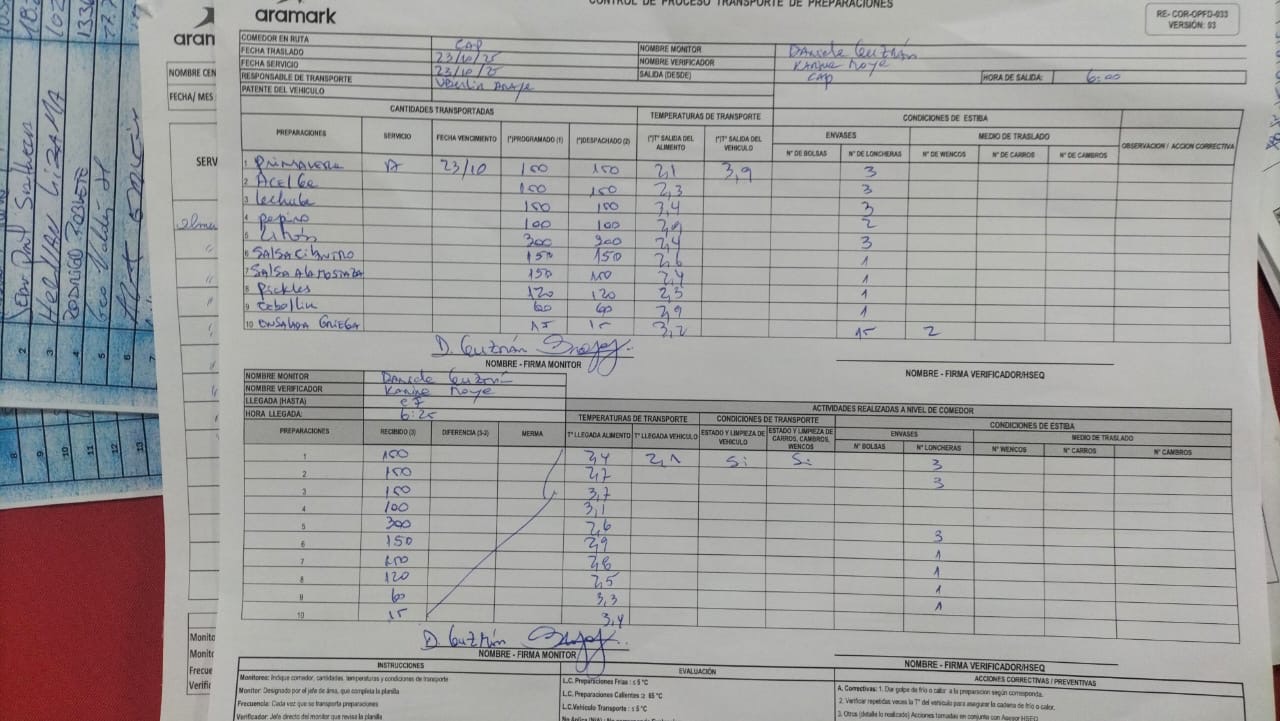 CONTROL DE PROCESO TRANSPORTE DE PREPARACIONES
aramark
RE- COR-OPFD-033
VERSIÓN: 03
COMEDOR EN RUTA CAP NOMBRE MONITOR Daniela Guzmán
FECHA TRASLADO 23/10/25 NOMBRE VERIFICADOR Karine Moye
FECHA SERVICIO 23/10/25 SALIDA (DESDE) CAP HORA DE SALIDA: 6:00
RESPONSABLE DE TRANSPORTE
PATENTE DEL VEHICULO
CANTIDADES TRANSPORTADAS TEMPERATURAS DE TRANSPORTE CONDICIONES DE ESTIBA
PREPARACIONES SERVICIO FECHA VENCIMIENTO (*)PROGRAMADO (1) (*)DESPACHADO (2) (*)T° SALIDA DEL ALIMENTO (*)T° SALIDA DEL VEHICULO ENVASES MEDIO DE TRASLADO OBSERVACION / ACCION CORRECTIVA
N° DE BOLSAS N° DE LONCHERAS N° DE WENCOS N° DE CARROS N° DE CAMBROS
1 Primavera A 23/10 150 2,1 3,9 3
2 Acelga 150 150 2,3 3
3 lechuga 150 150 3,4 3
4 pepino 100 100 2
5 Limón 300 300 2,4 3
6 SALSA Cilantro 150 150 2,6 1
7 SALSA A LA MOSTAZA 150 2,4 1
8 Pickles 120 120 2,5 1
9 Cebollin 60 60 2,9 1
10 ENSALADA GRIEGA 15 15 3,2 15 2
D. Guzmán
NOMBRE - FIRMA MONITOR NOMBRE - FIRMA VERIFICADOR/HSEQ
NOMBRE MONITOR Daniela Guzmán
NOMBRE VERIFICADOR Karine Moye
LLEGADA (HASTA) e7
HORA LLEGADA: 6:25
ACTIVIDADES REALIZADAS A NIVEL DE COMEDOR
TEMPERATURAS DE TRANSPORTE CONDICIONES DE TRANSPORTE CONDICIONES DE ESTIBA
PREPARACIONES RECIBIDO (3) DIFERENCIA (3-2) MERMA T° LLEGADA ALIMENTO T° LLEGADA VEHICULO ESTADO Y LIMPIEZA DE VEHICULO ESTADO Y LIMPIEZA DE CARROS, CAMBROS, WENCOS ENVASES MEDIO DE TRASLADO
N° BOLSAS N° LONCHERAS N° WENCOS N° CARROS N° CAMBROS
1 150 2,4 2,1 Si Si 3
2 150 2,7 3
3 150 3,7
4 100 3,1
5 300 2,6
6 150 2,9 3
7 2,8 1
8 120 2,5 1
9 60 3,3 1
10 15 3,4 1
D. Guzmán
NOMBRE - FIRMA MONITOR NOMBRE - FIRMA VERIFICADOR/HSEQ
INSTRUCCIONES EVALUACIÓN ACCIONES CORRECTIVAS / PREVENTIVAS
Monitoreo: Indique comedor, cantidades, temperaturas y condiciones de transporte
Monitor: Designado por el jefe de área, que completa la planilla
Frecuencia: Cada vez que se transporta preparaciones
Verificador: Jefe directo del monitor que revisa la planilla
L.C. Preparaciones Frias : ≤ 5 °C
L.C. Preparaciones Calientes :≥ 65 °C
L.C.Vehículo Transporte : ≤ 5 °C
A. Correctivas: 1. Dar golpe de frío o calor a la preparación según corresponda.
2. Verificar repetidas veces la T° del vehículo para asegurar la cadena de frío o calor.
3. Otros (detalle lo realizado) Acciones tomadas en conjunto con Asesor HSEQ
aram
NOMBRE CEN
FECHA/ MES
SERV
Monito
Monito
Frecue
Verific